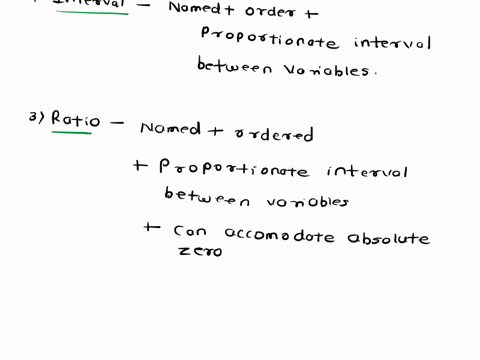 Interval - Named + order +
Proportionate interval
between variables.
3) Ratio - Named + ordered
+ Proportionate interval
between variables
+ can accomodate absolute
zero